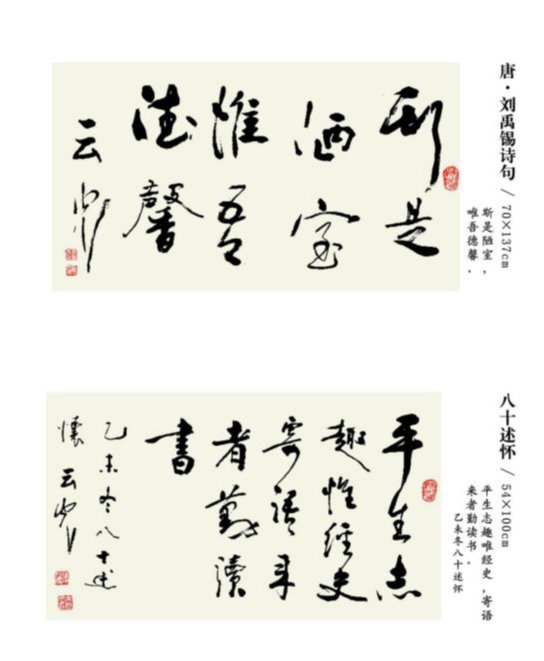 唐·刘禹锡诗句 / 70×137cm
斯是陋室，
唯吾德馨。
斯是
陋室
惟吾
德馨
云
八十述怀 / 54×100cm
平生志趣唯经史，寄语
来者勤读书。
乙未冬八十述怀
平生志
趣惟經史
寄語来
者勤讀
書
乙未冬八十述
懷 云